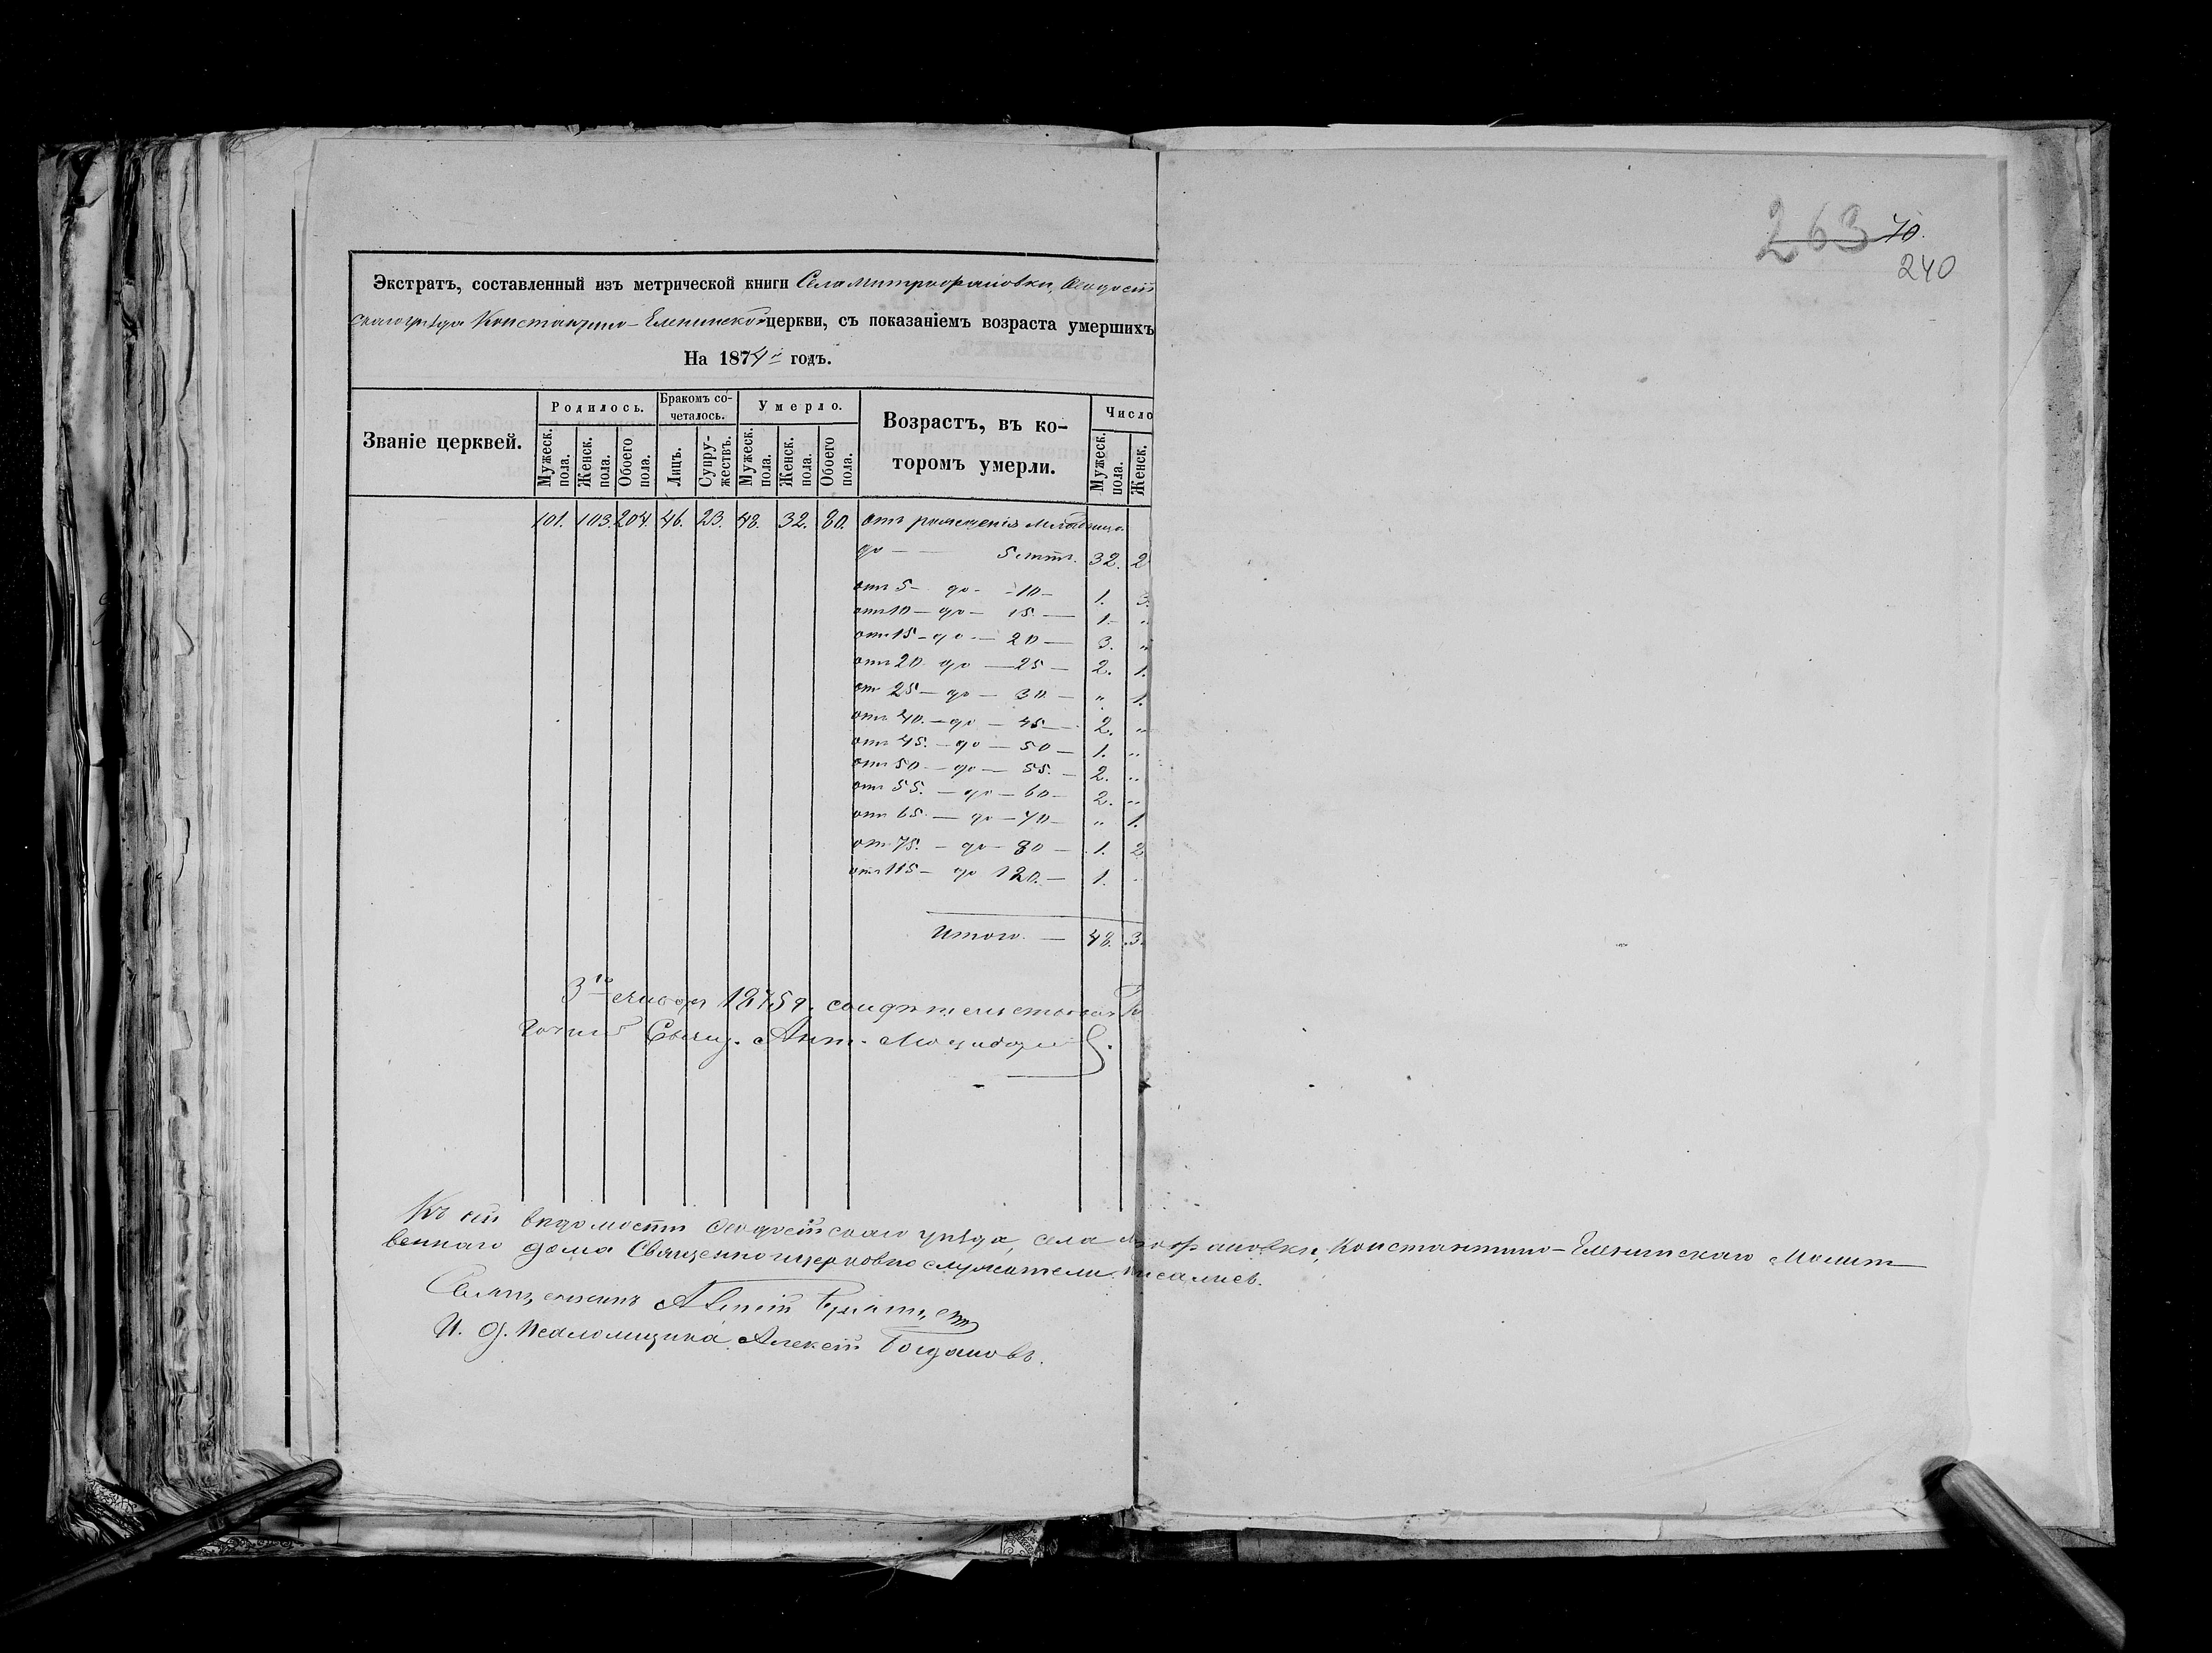 263 70.
240
Экстратъ, составленный изъ метрической книги Села Митрофановки, Ѳеодосій
скаго уѣзда Константино-Еленинской церкви, съ показаніемъ возраста умершихъ
На 1874й годъ.
Званіе церквей.
Родилось.
Мужеск. пола.
Женск. пола.
Обоего пола.
Бракомъ со-
четалось.
Лицъ.
Супру-
жествъ.
Умерло.
Мужеск. пола.
Женск. пола.
Обоего пола.
Возрастъ, въ ко-
торомъ умерли.
Число
Мужеск. пола.
Женск.
101. 103. 204. 46. 23. 48. 32. 80. отъ рожденія младенца
до — 5 лѣтъ. 32. 2
отъ 5 — до — 10 — 1. 3.
отъ 10 — до — 15. — 1. „
отъ 15 — до — 20 — 3. „
отъ 20. до — 25 — 2. 1.
от 25 — до — 30. — „ 1.
отъ 40. — до — 45 — 2. „
отъ 45. — до — 50 — 1. „
отъ 50. — до — 55. — 2. „
отъ 55. — до — 60 — 2. „
отъ 65. — до — 70 — „ 1.
от 75. — до — 80 — 1. 2
отъ 115 — до 120. — 1.
Итого. — 48. 3.
3го 1875 г. свидѣтельствовалъ
Свящ. Ант.
Къ сей вѣдомости Ѳеодосійскаго уѣзда, села офановки, Константино-Еленинскаго Молит
веннаго дома Священноцерковнослужители писались.
Священникъ
И. д. Псаломщика Алексѣй Богдановъ.